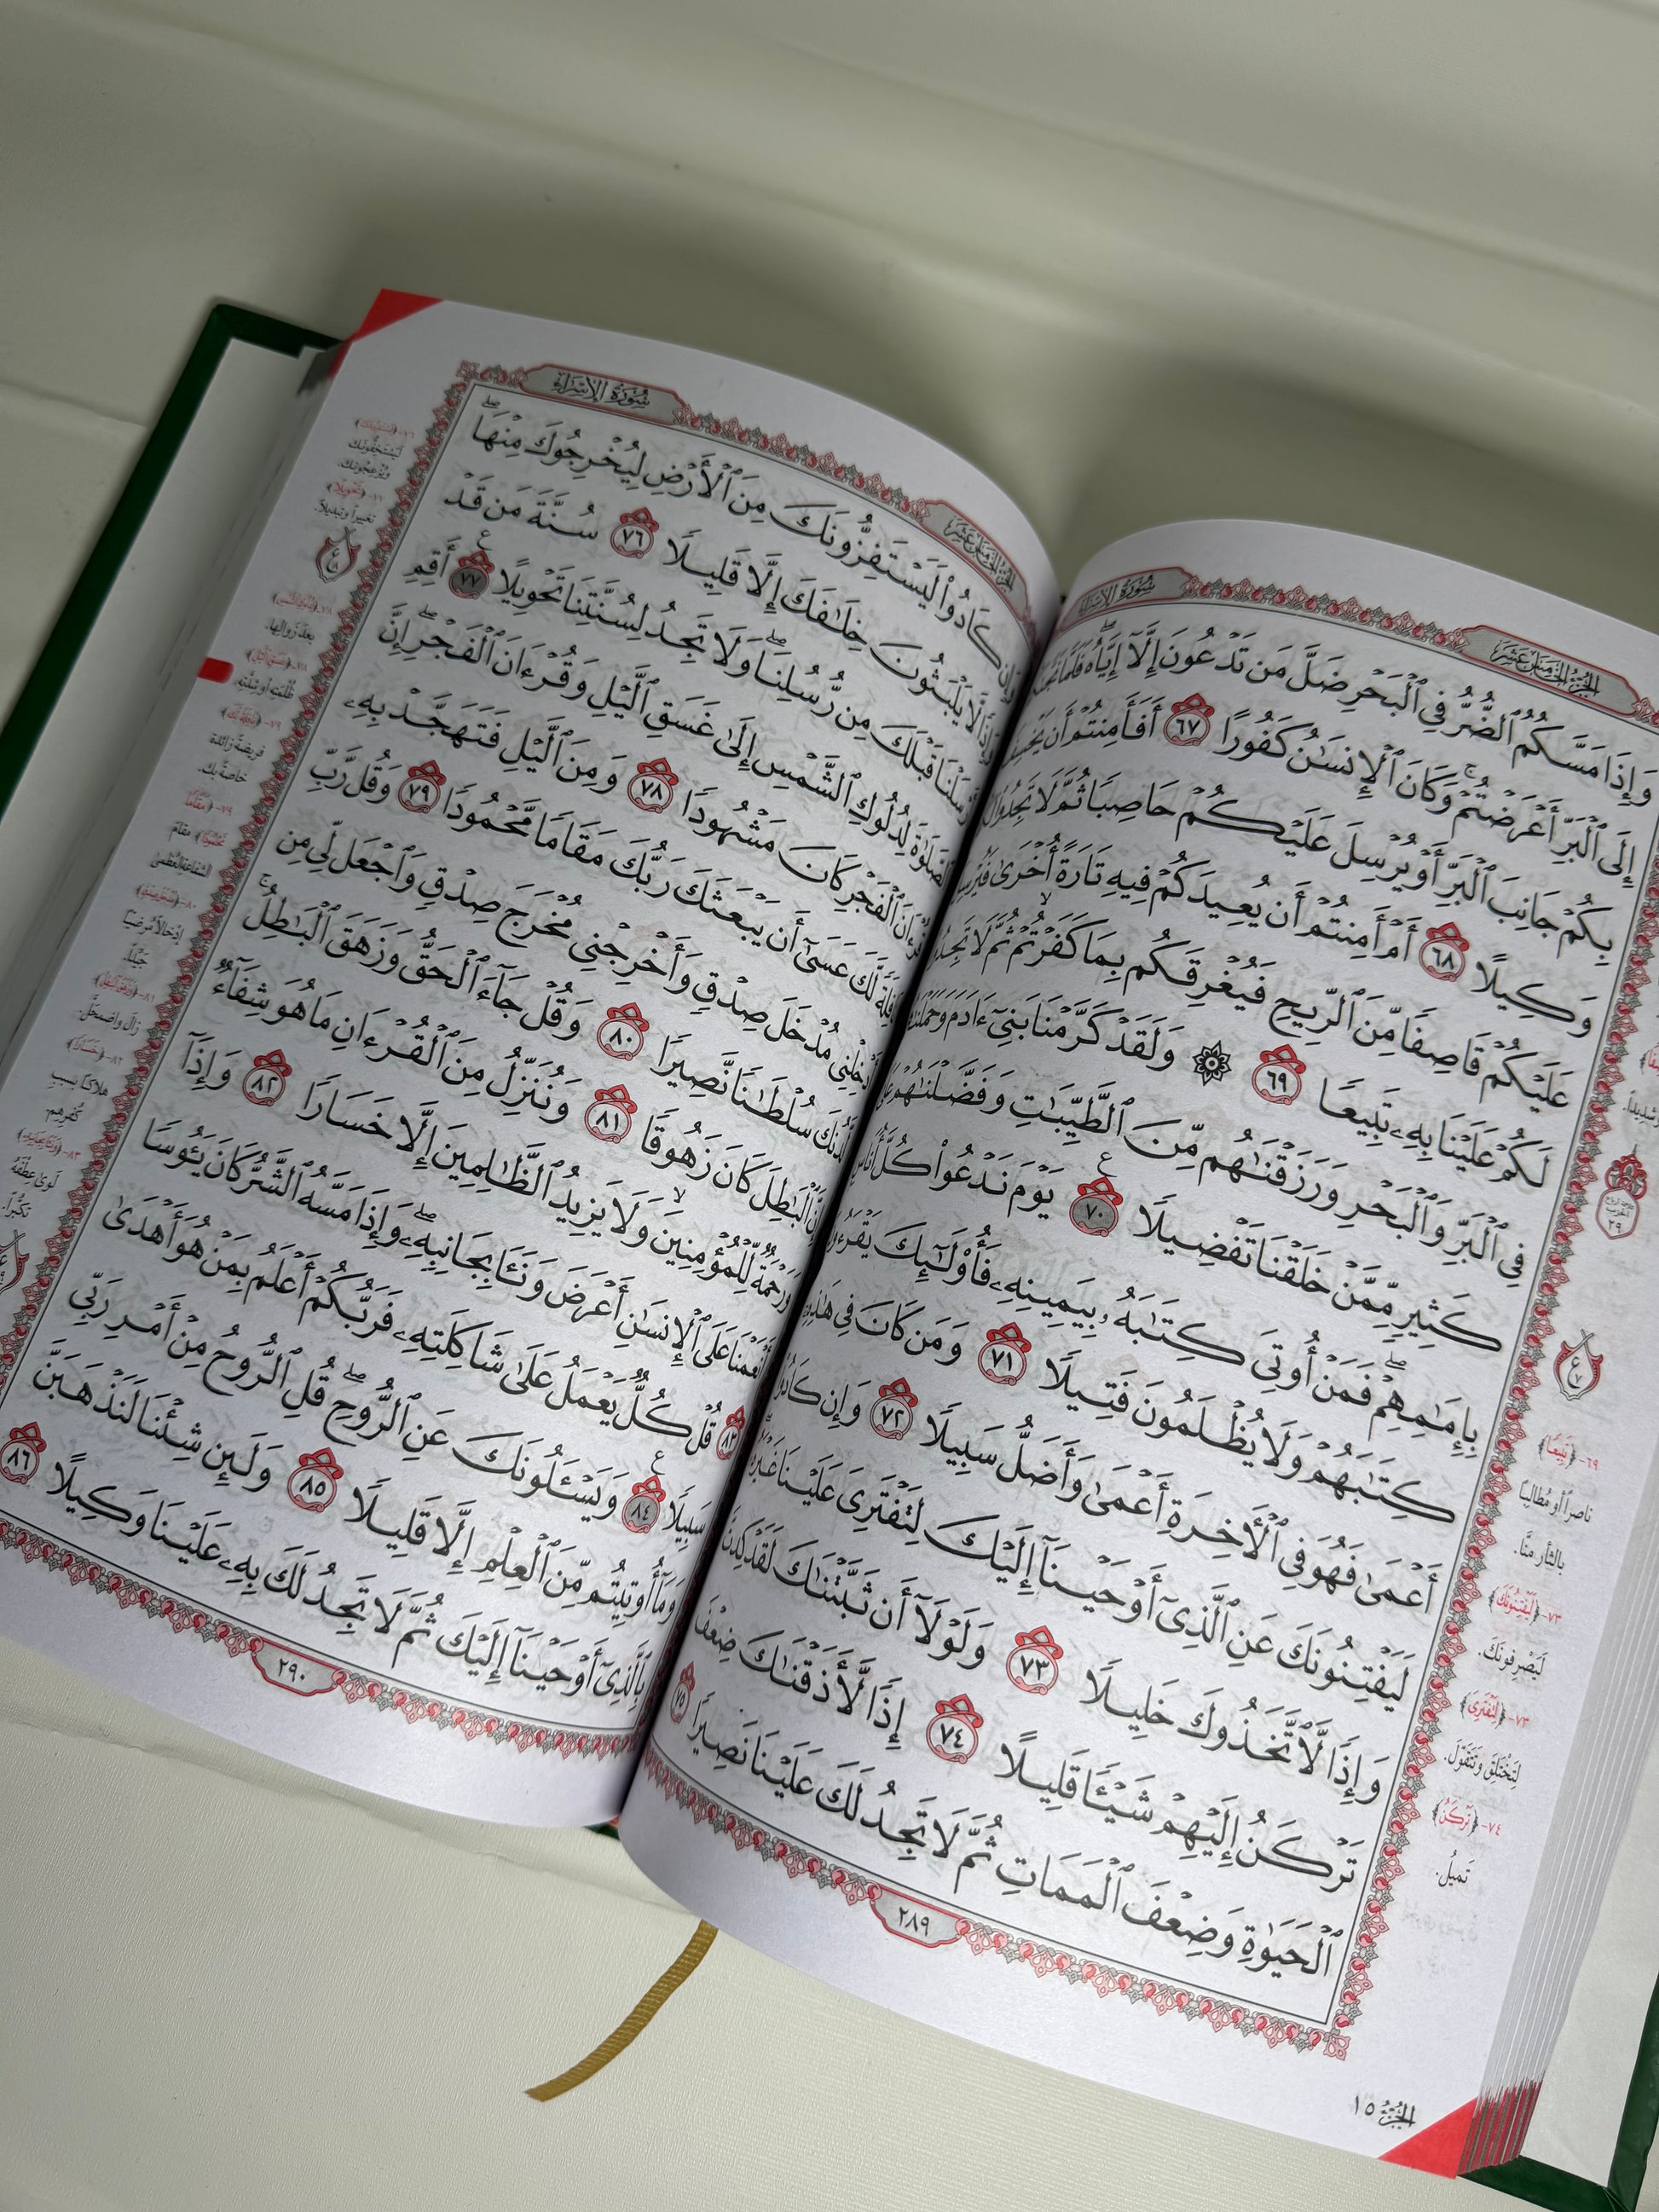 الجزء الخامس عشر
سورة الإسراء
وَإِذَا مَسَّكُمُ ٱلضُّرُّ فِى ٱلْبَحْرِ ضَلَّ مَن تَدْعُونَ إِلَّآ إِيَّاهُ فَلَمَّا
إِلَى ٱلْبَرِّ أَعْرَضْتُمْ وَكَانَ ٱلْإِنسَٰنُ كَفُورًا ٦٧ أَفَأَمِنتُمْ أَن
بِكُمْ جَانِبَ ٱلْبَرِّ أَوْ يُرْسِلَ عَلَيْكُمْ حَاصِبًا ثُمَّ لَا تَجِدُوا۟
وَكِيلًا ٦٨ أَمْ أَمِنتُمْ أَن يُعِيدَكُمْ فِيهِ تَارَةً أُخْرَىٰ
عَلَيْكُمْ قَاصِفًا مِّنَ ٱلرِّيحِ فَيُغْرِقَكُم بِمَا كَفَرْتُمْ ثُمَّ لَا
لَكُمْ عَلَيْنَا بِهِۦ تَبِيعًا ٦٩ ۞ وَلَقَدْ كَرَّمْنَا بَنِىٓ ءَادَمَ وَحَمَلْنَٰهُمْ
فِى ٱلْبَرِّ وَٱلْبَحْرِ وَرَزَقْنَٰهُم مِّنَ ٱلطَّيِّبَٰتِ وَفَضَّلْنَٰهُمْ
كَثِيرٍ مِّمَّنْ خَلَقْنَا تَفْضِيلًا ٧٠ يَوْمَ نَدْعُوا۟ كُلَّ أُنَاسٍۭ
بِإِمَٰمِهِمْ ۖ فَمَنْ أُوتِىَ كِتَٰبَهُۥ بِيَمِينِهِۦ فَأُو۟لَٰٓئِكَ يَقْرَءُونَ
كِتَٰبَهُمْ وَلَا يُظْلَمُونَ فَتِيلًا ٧١ وَمَن كَانَ فِى هَٰذِهِۦٓ
أَعْمَىٰ فَهُوَ فِى ٱلْأَخِرَةِ أَعْمَىٰ وَأَضَلُّ سَبِيلًا ٧٢ وَإِن كَادُوا۟
لَيَفْتِنُونَكَ عَنِ ٱلَّذِىٓ أَوْحَيْنَآ إِلَيْكَ لِتَفْتَرِىَ عَلَيْنَا غَيْرَهُۥ ۖ
وَإِذًا لَّٱتَّخَذُوكَ خَلِيلًا ٧٣ وَلَوْلَآ أَن ثَبَّتْنَٰكَ لَقَدْ كِدتَّ
تَرْكَنُ إِلَيْهِمْ شَيْـًٔا قَلِيلًا ٧٤ إِذًا لَّأَذَقْنَٰكَ ضِعْفَ
ٱلْحَيَوٰةِ وَضِعْفَ ٱلْمَمَاتِ ثُمَّ لَا تَجِدُ لَكَ عَلَيْنَا نَصِيرًا ٧٥
٢٨٩
الجزء ١٥
الحزب
٢٩
٦٩- ﴿تَبِيعًا﴾
ناصراً أو مُطالِباً
بالثأر منَّا.
٧٣- ﴿لَيَفْتِنُونَكَ﴾
لَيَصْرِفُونَكَ.
٧٣- ﴿لِتَفْتَرِىَ﴾
لِتَخْتَلِقَ وَتَتَقَوَّلَ.
٧٤- ﴿تَرْكَنُ﴾
تَميلُ.
الجزء الخامس عشر
سورة الإسراء
وَإِن كَادُوا۟ لَيَسْتَفِزُّونَكَ مِنَ ٱلْأَرْضِ لِيُخْرِجُوكَ مِنْهَا ۖ
وَإِذًا لَّا يَلْبَثُونَ خِلَٰفَكَ إِلَّا قَلِيلًا ٧٦ سُنَّةَ مَن قَدْ
أَرْسَلْنَا قَبْلَكَ مِن رُّسُلِنَا ۖ وَلَا تَجِدُ لِسُنَّتِنَا تَحْوِيلًا ٧٧ أَقِمِ
ٱلصَّلَوٰةَ لِدُلُوكِ ٱلشَّمْسِ إِلَىٰ غَسَقِ ٱلَّيْلِ وَقُرْءَانَ ٱلْفَجْرِ ۖ إِنَّ
قُرْءَانَ ٱلْفَجْرِ كَانَ مَشْهُودًا ٧٨ وَمِنَ ٱلَّيْلِ فَتَهَجَّدْ بِهِۦ
نَافِلَةً لَّكَ عَسَىٰٓ أَن يَبْعَثَكَ رَبُّكَ مَقَامًا مَّحْمُودًا ٧٩ وَقُل رَّبِّ
أَدْخِلْنِى مُدْخَلَ صِدْقٍ وَأَخْرِجْنِى مُخْرَجَ صِدْقٍ وَٱجْعَل لِّى مِن
لَّدُنكَ سُلْطَٰنًا نَّصِيرًا ٨٠ وَقُلْ جَآءَ ٱلْحَقُّ وَزَهَقَ ٱلْبَٰطِلُ ۚ
إِنَّ ٱلْبَٰطِلَ كَانَ زَهُوقًا ٨١ وَنُنَزِّلُ مِنَ ٱلْقُرْءَانِ مَا هُوَ شِفَآءٌ
وَرَحْمَةٌ لِّلْمُؤْمِنِينَ ۙ وَلَا يَزِيدُ ٱلظَّٰلِمِينَ إِلَّا خَسَارًا ٨٢ وَإِذَآ
أَنْعَمْنَا عَلَى ٱلْإِنسَٰنِ أَعْرَضَ وَنَـَٔا بِجَانِبِهِۦ ۖ وَإِذَا مَسَّهُ ٱلشَّرُّ كَانَ يَـُٔوسًا
٨٣ قُلْ كُلٌّ يَعْمَلُ عَلَىٰ شَاكِلَتِهِۦ فَرَبُّكُمْ أَعْلَمُ بِمَنْ هُوَ أَهْدَىٰ
سَبِيلًا ٨٤ وَيَسْـَٔلُونَكَ عَنِ ٱلرُّوحِ ۖ قُلِ ٱلرُّوحُ مِنْ أَمْرِ رَبِّى
وَمَآ أُوتِيتُم مِّنَ ٱلْعِلْمِ إِلَّا قَلِيلًا ٨٥ وَلَئِن شِئْنَا لَنَذْهَبَنَّ
بِٱلَّذِىٓ أَوْحَيْنَآ إِلَيْكَ ثُمَّ لَا تَجِدُ لَكَ بِهِۦ عَلَيْنَا وَكِيلًا ٨٦
٢٩٠
لَيَسْتَخِفُّونَكَ
وَيُزْعِجُونَكَ.
﴿تَحْوِيلًا﴾
تغييراً وتبديلاً.
بعدَ زَوالِها.
ظُلْمَتِهِ أو شِدَّتِهِ.
فريضةً زائدة
خاصةً بك.
٧٩- ﴿مَقَامًا
مَّحْمُودًا﴾ مقامَ
الشفاعةِ العُظمى
٨٠-
إدخالاً مَرضيّاً
جيِّداً.
٨١- ﴿وَزَهَقَ ٱلْبَٰطِلُ﴾
زالَ واضمحلَّ.
٨٢- ﴿خَسَارًا﴾
هلاكاً بسببِ
كُفرِهِم.
٨٣-
لَوى عِطْفَهُ
تكبُّراً.